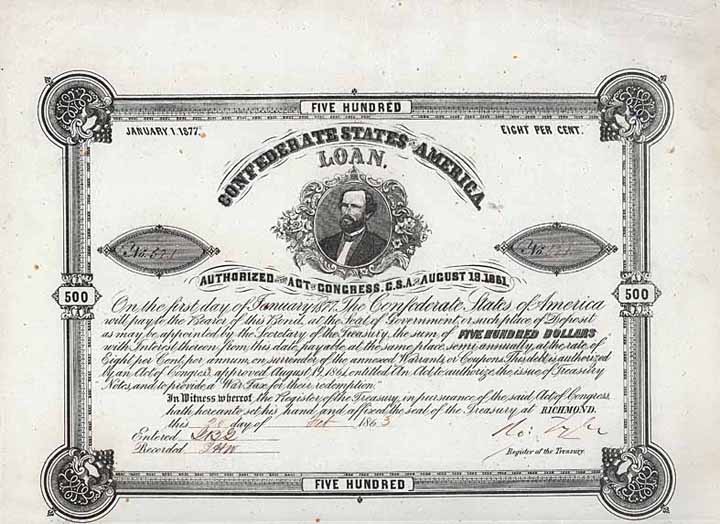 FIVE HUNDRED
JANUARY 1. 1877.
EIGHT PER CENT.
CONFEDERATE STATES OF AMERICA
LOAN.
No.
No.
AUTHORIZED BY ACT OF CONGRESS, C.S.A. OF AUGUST 19. 1861.
500
500
On the first day of January 1877. The Confederate States of America
will pay to the Bearer of this Bond, at the seat of Government, or such place of Deposit
as may be appointed by the Secretary of the Treasury, the sum of FIVE HUNDRED DOLLARS
with Interest thereon from this date, payable at the same place, semi-annually, at the rate of
Eight per Cent, per annum, on surrender of the annexed Warrants or Coupons. This debt is authorized
by an Act of Congress approved August 19, 1861, entitled "An Act to authorize the issue of Treasury
Notes, and to provide a War Tax for their redemption."
In Witness whereof, the Register of the Treasury, in pursuance of the said Act of Congress,
hath hereunto set his hand and affixed the seal of the Treasury, at RICHMOND.
this day of 1863
Entered
Recorded
Register of the Treasury.
FIVE HUNDRED